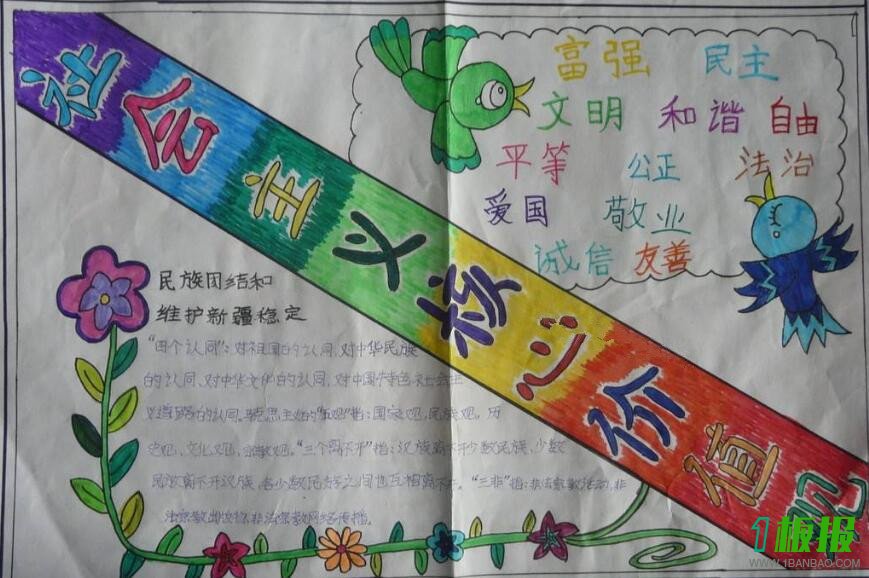 社会主义核心价值观
富强 民主
文明 和谐 自由
平等 公正 法治
爱国 敬业
诚信 友善
民族团结和
维护新疆稳定
"四个认同":对祖国的认同,对中华民族
的认同,对中华文化的认同,对中国特色社会主
义道路的认同。马克思主义的"五观"指:国家观,民族观,历
史观,文化观,宗教观。"三个离不开"指:汉族离不开少数民族、少数
民族离不开汉族、各少数民族之间也互相离不开。"三非"指:非法宗教活动,非
法宗教出版物,非法宗教网络传播。
1板报
WWW.1BANBAO.COM